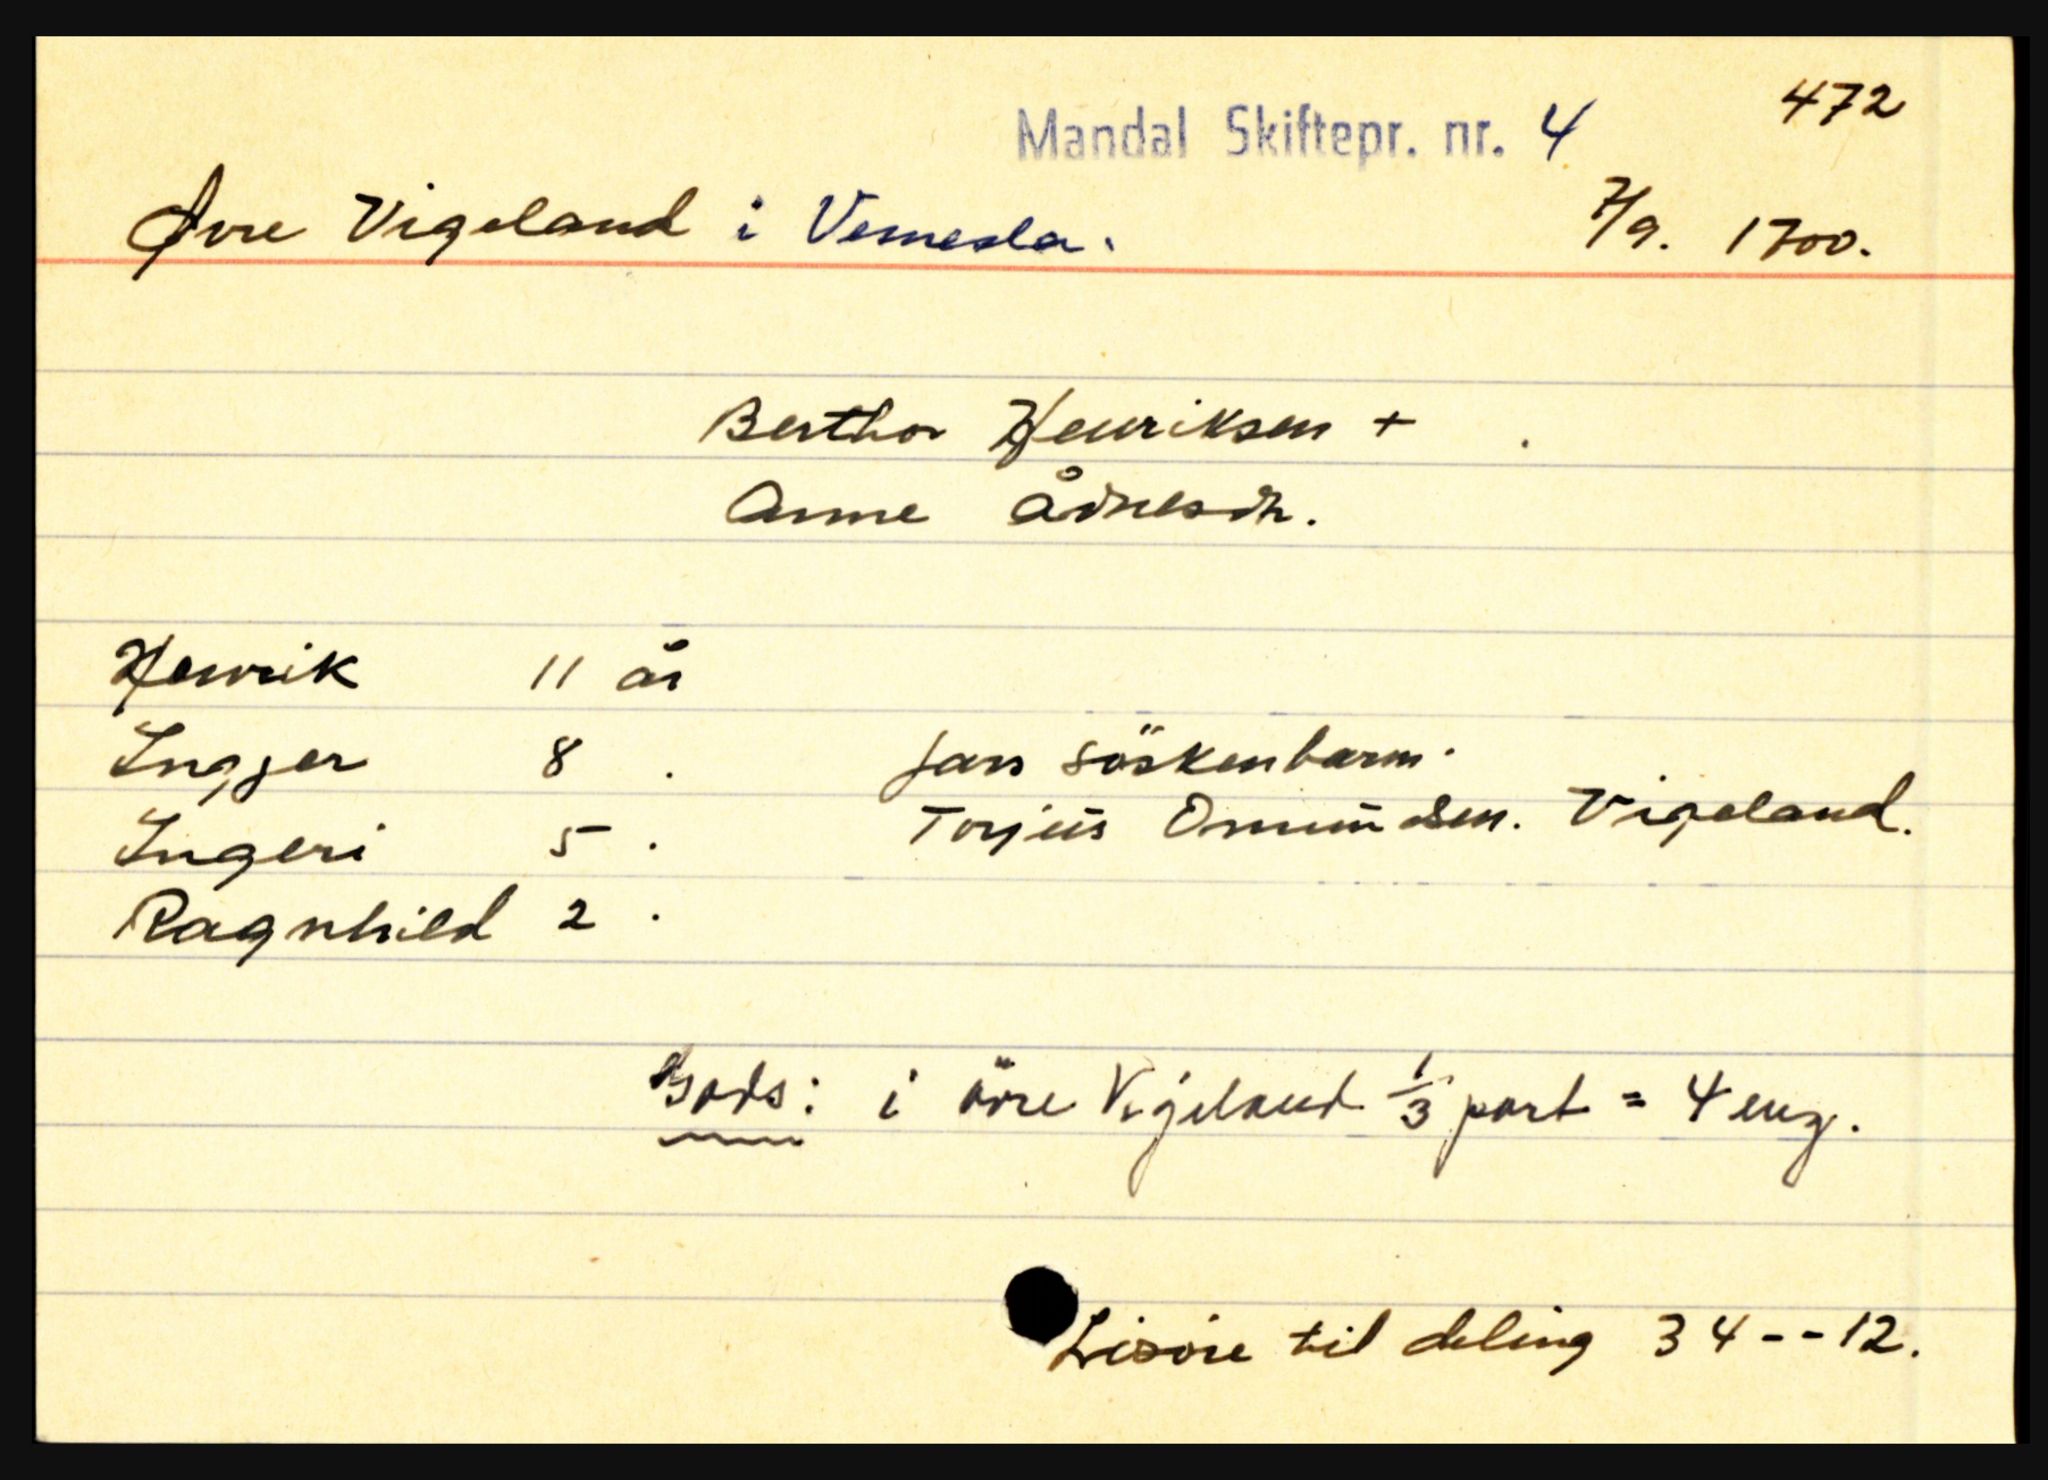 472
Mandal Skiftepr. nr. 4
Øvre Vigeland i Vennesla. 7/9. 1700.
Berthor Henriksen +
Anne Ådnesdr.
Henrik 11 år
Ingjer 8 . fars söskenbarn.
Ingeri 5 . Torjus Omundsen. Vigeland.
Ragnhild 2 .
Gods: i övre Vigeland 1/3 part = 4 eng.
Lisöre til deling 34--12.